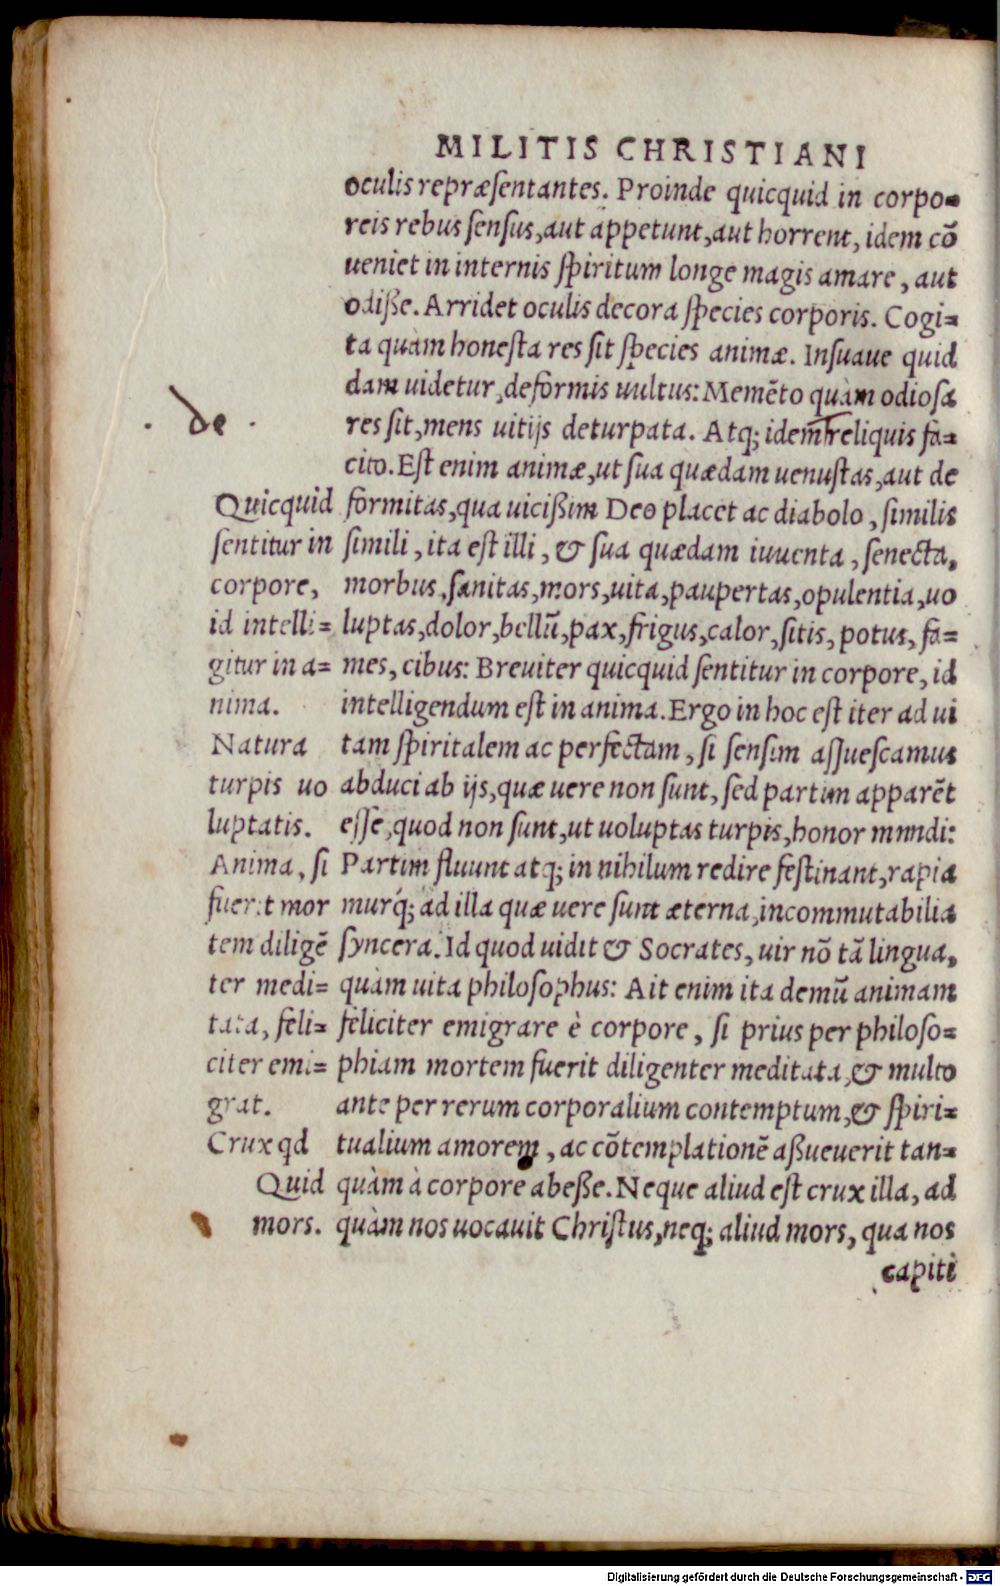 MILITIS CHRISTIANI
oculis repræsentantes. Proinde quicquid in corpo=
reis rebus sensus, aut appetunt, aut horrent, idem cõ
ueniet in internis spiritum longe magis amare, aut
odiße. Arridet oculis decora species corporis. Cogi=
ta quàm honesta res sit species animæ. Insuaue quid
dam uidetur, deformis uultus: Memẽto quàm odiosa
res sit, mens uitijs deturpata. Atq; idem reliquis fa=
cito. Est enim animæ, ut sua quædam uenustas, aut de
formitas, qua uicißim Deo placet ac diabolo, similis
simili, ita est illi, & sua quædam iuuenta, senecta,
morbus, sanitas, mors, uita, paupertas, opulentia, uo
luptas, dolor, bellũ, pax, frigus, calor, sitis, potus, fa=
mes, cibus: Breuiter quicquid sentitur in corpore, id
intelligendum est in anima. Ergo in hoc est iter ad ui
tam spiritalem ac perfectam, si sensim assuescamus
abduci ab ijs, quæ uere non sunt, sed partim apparẽt
esse, quod non sunt, ut uoluptas turpis, honor mnndi:
Partim fluunt atq; in nihilum redire festinant, rapia
murq́; ad illa quæ uere sunt æterna, incommutabilia
syncera. Id quod uidit & Socrates, uir nõ tã lingua,
quàm uita philosophus: Ait enim ita demũ animam
feliciter emigrare è corpore, si prius per philoso=
phiam mortem fuerit diligenter meditata, & multo
ante per rerum corporalium contemptum, & spiri=
tualium amorem, ac cõtemplationẽ aßueuerit tan=
quàm à corpore abeße. Neque aliud est crux illa, ad
quàm nos uocauit Christus, neq; aliud mors, qua nos
capiti
de
Quicquid
sentitur in
corpore,
id intelli=
gitur in a=
nima.
Natura
turpis uo
luptatis.
Anima, si
fuerit mor
tem diligẽ
ter medi=
tata, feli=
citer emi=
grat.
Crux qd
Quid
mors.
Digitalisierung gefördert durch die Deutsche Forschungsgemeinschaft - DFG